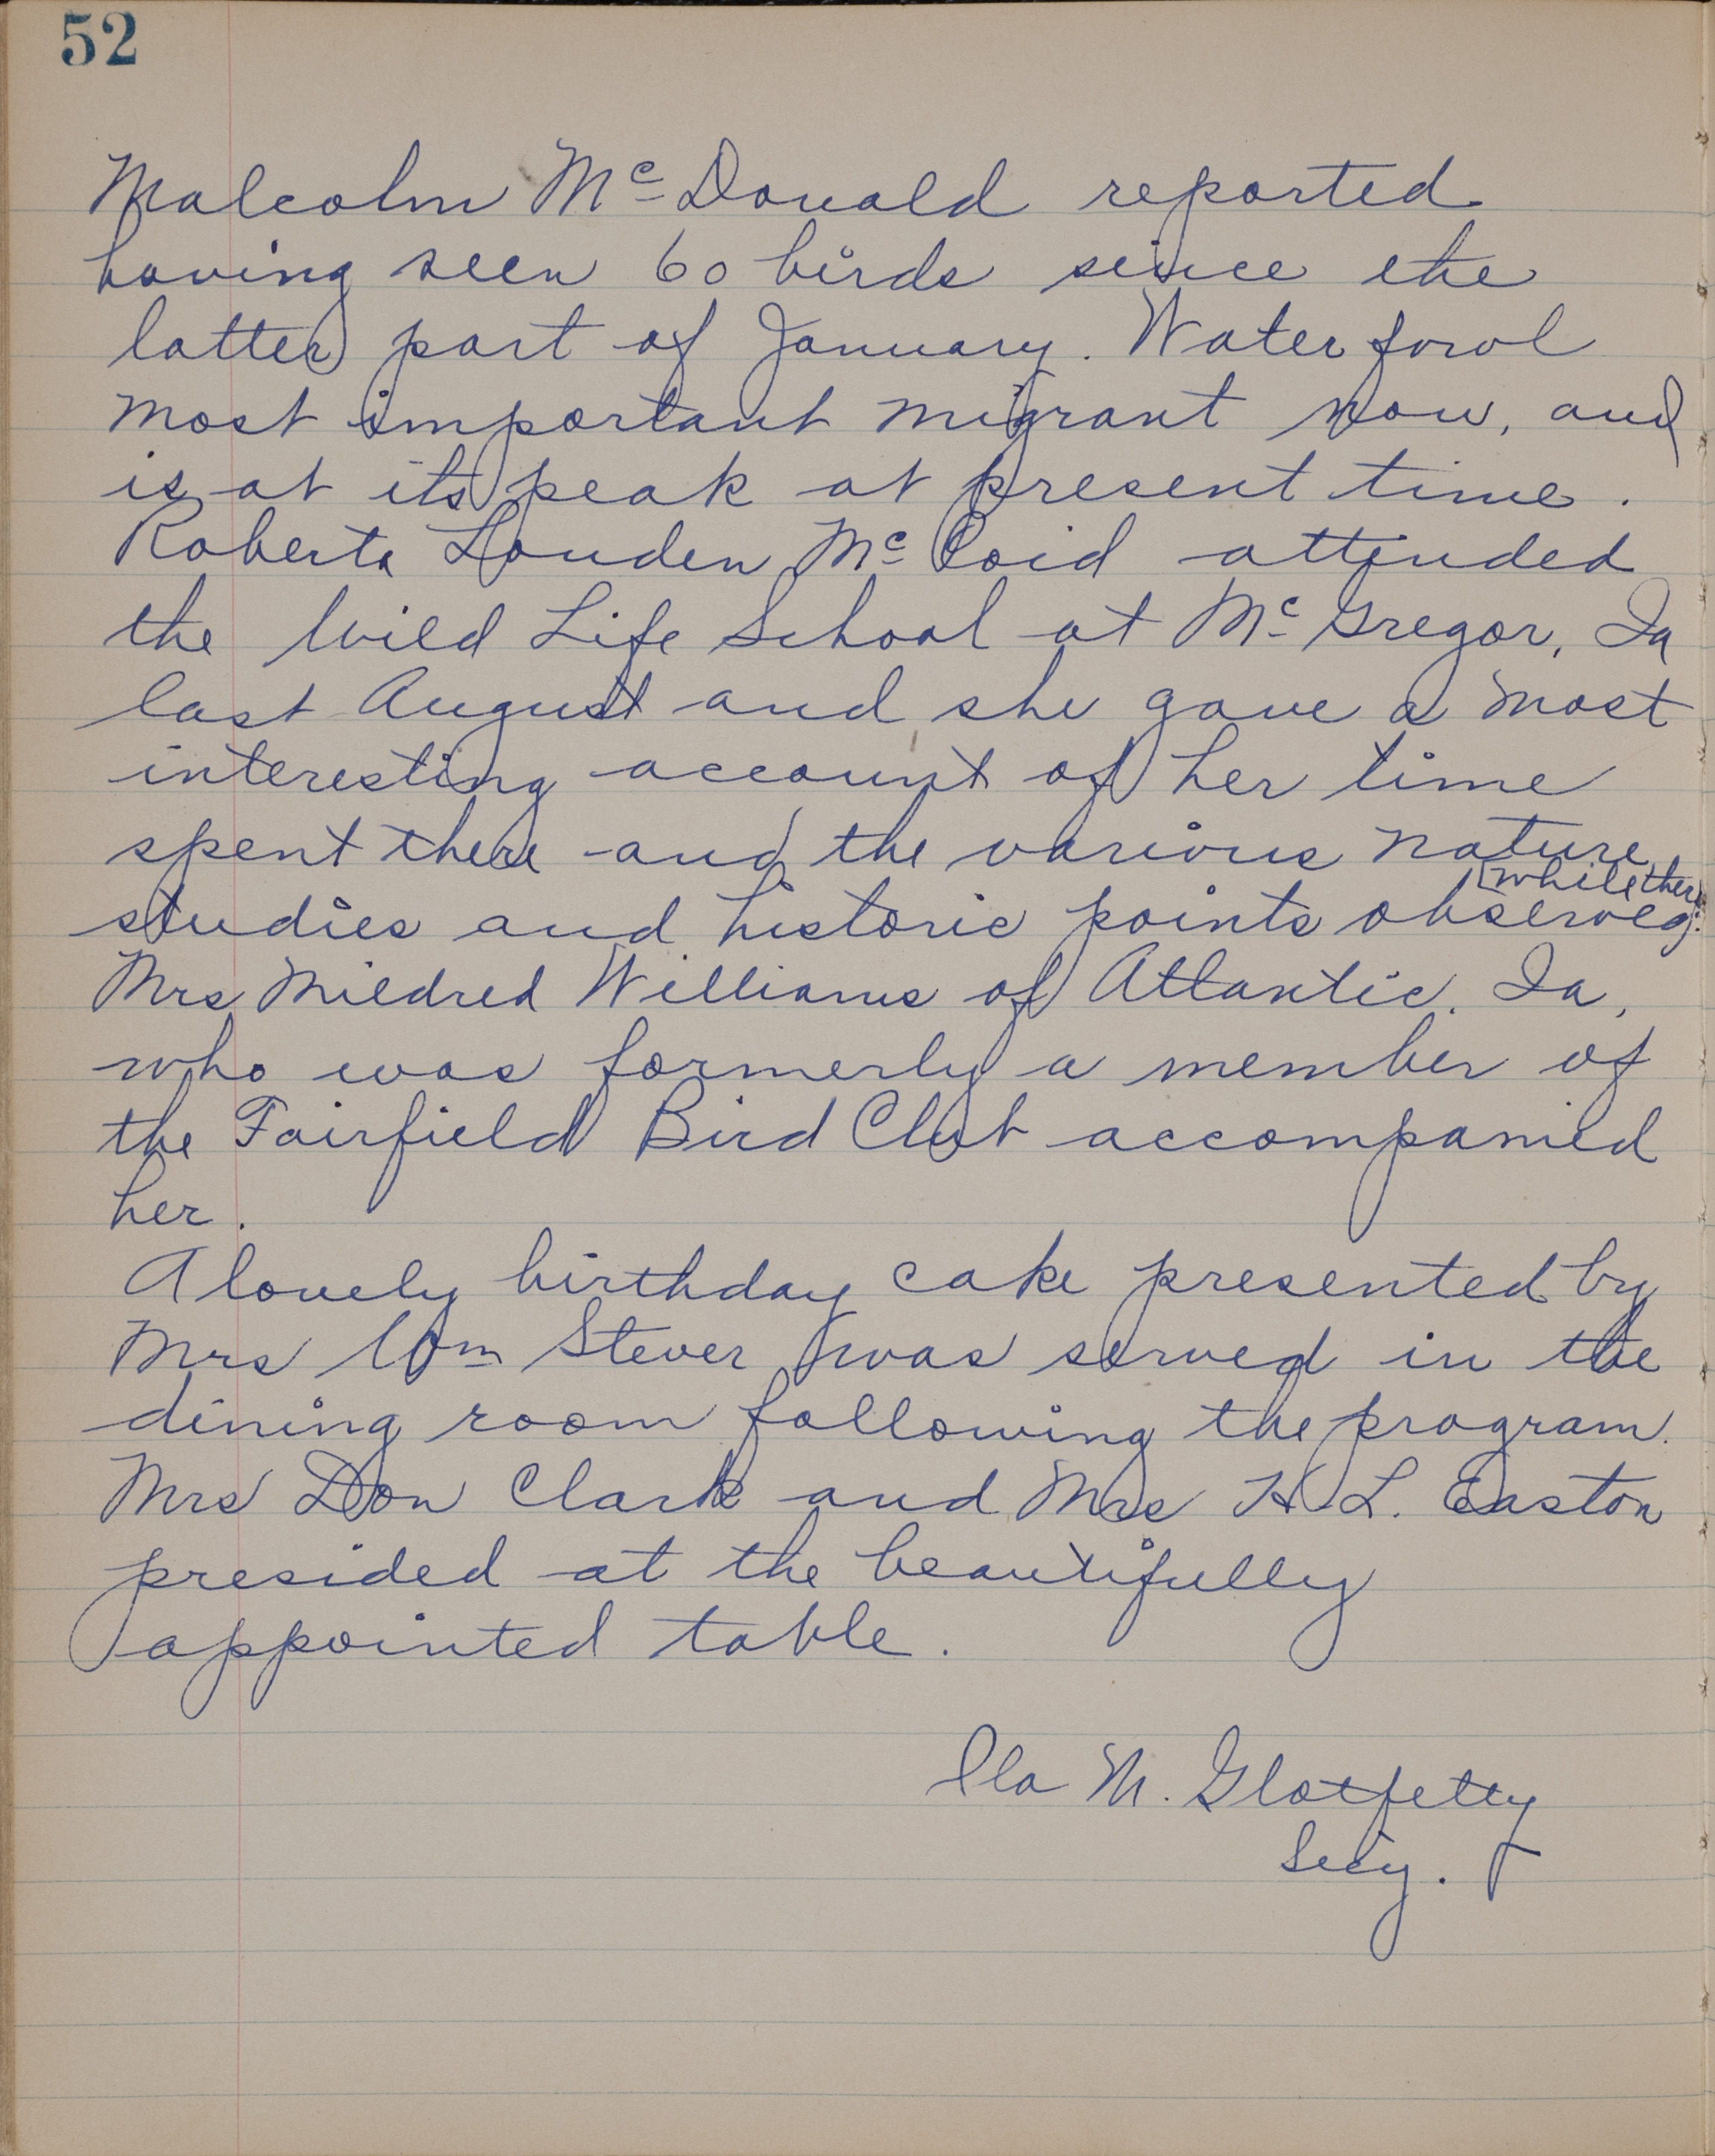 52
Malcolm McDonald reported
having seen 60 birds since the
latter part of January. Water fowl
most important migrant now, and
is at its peak at present time.
Roberta Louden McCoid attended
the Wild Life School at McGregor, Ia
last August and she gave a most
interesting account of her time
spent there and the various nature
[while there
studies and historic points observed.
Mrs Mildred Williams of Atlantic, Ia,
who was formerly a member of
the Fairfield Bird Club accompanied
her.
A lovely birthday cake presented by
Mrs Wm Stever was served in the
dining room following the program.
Mrs Don Clark and Mrs H L. Easton
presided at the beautifully
appointed table.
Ila M. Glotfelty
Secy.